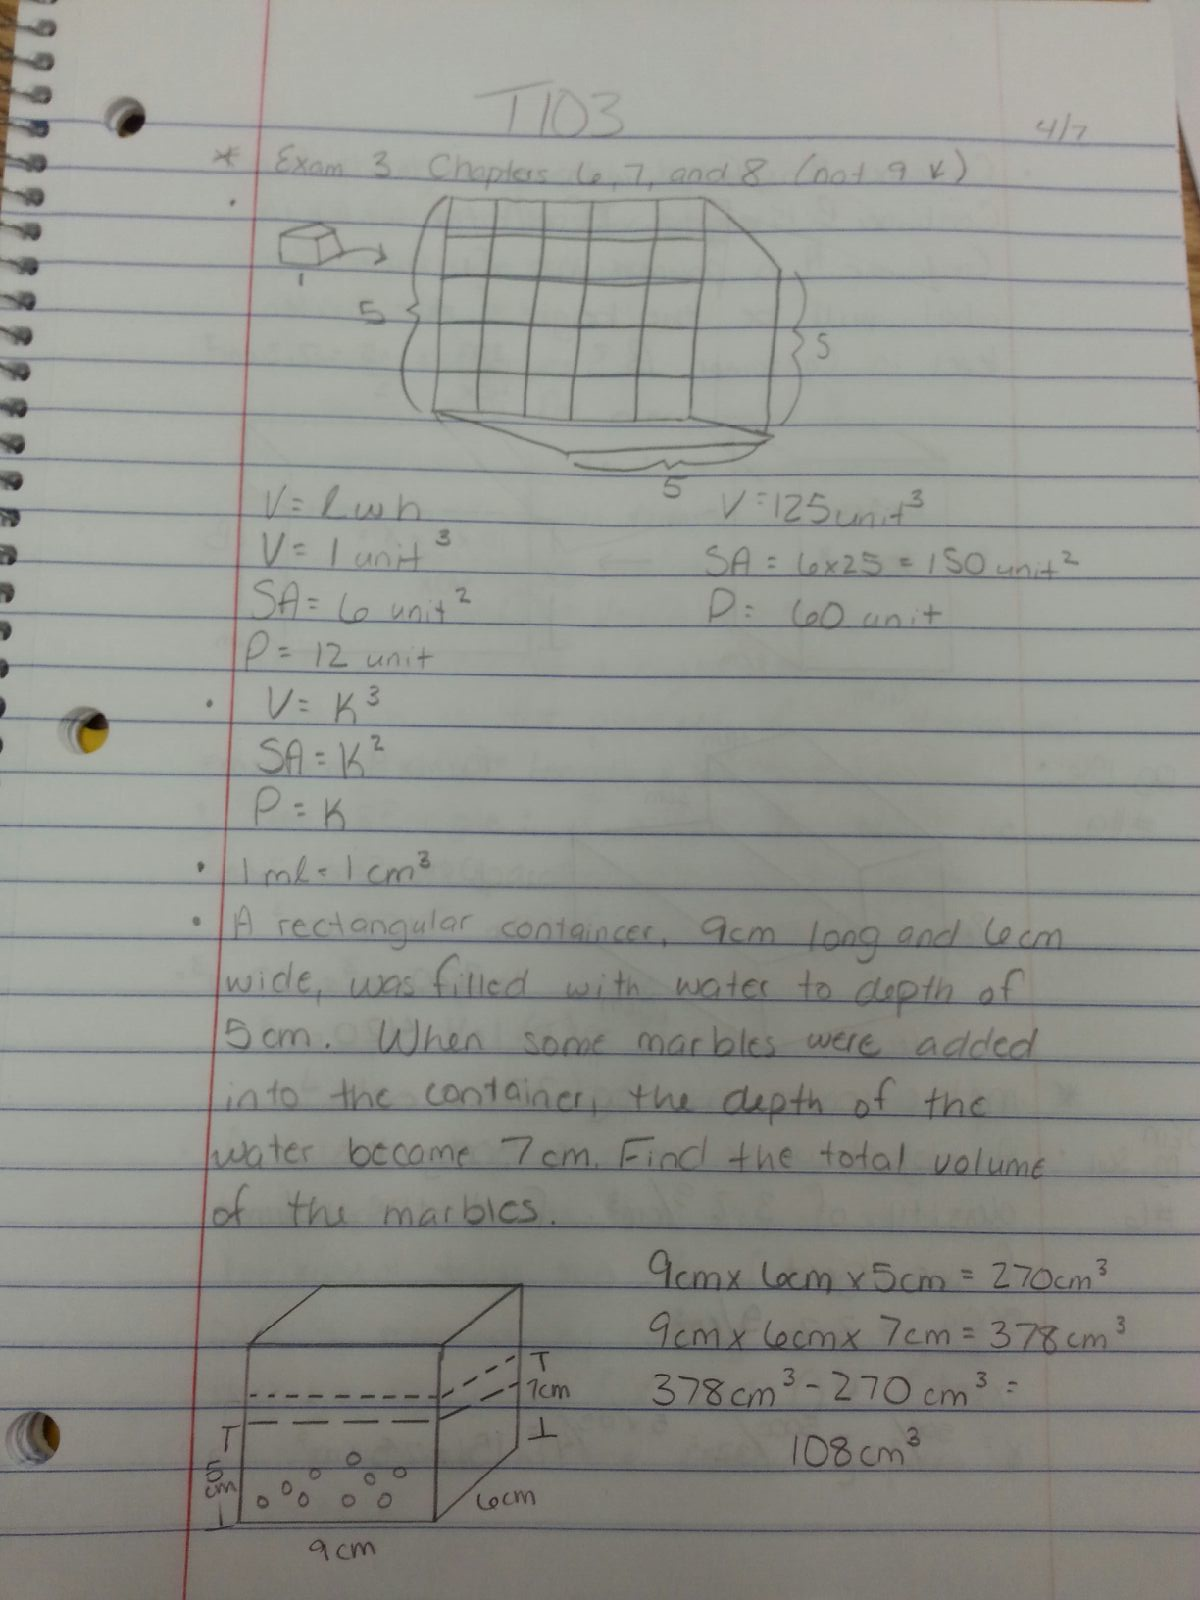 T103
4/7
* Exam 3 Chapters 6, 7, and 8 (not 9 )
1
5
5
5
V = lwh
V = 125 unit³
V = 1 unit³
SA = 6x25 = 150 unit²
SA = 6 unit²
P = 60 unit
P = 12 unit
• V = K³
SA = K²
P = K
• 1 ml = 1 cm³
• A rectangular containcer, 9cm long and 6cm
wide, was filled with water to depth of
5cm. When some marbles were added
into the container, the depth of the
water became 7cm. Find the total volume
of the marbles.
9cm x 6cm x 5cm = 270cm³
9cm x 6cm x 7cm = 378cm³
7cm
378cm³ - 270cm³ =
108cm³
5
cm
6cm
9cm